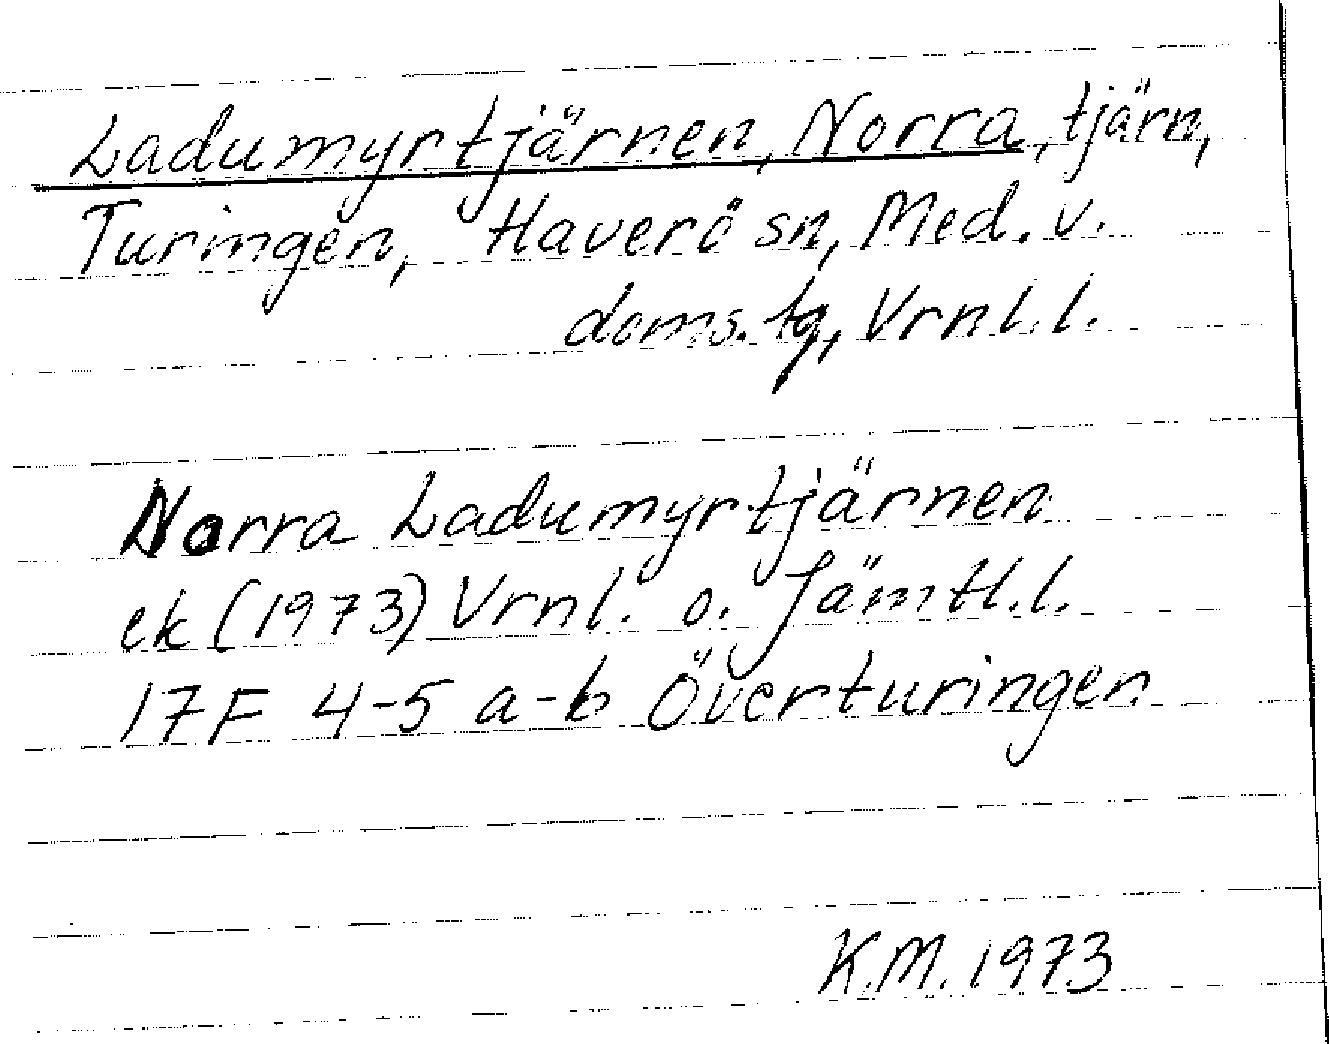 Ladumyrtjärnen, Norra, tjärn,
Turingen, Haverö sn, Med. v.
doms. tg, Vrnl. l.
Norra Ladumyrtjärnen
ek (1973) Vrnl. o. Jämtl. l.
17F 4-5 a-b Överturingen
K.M. 1973